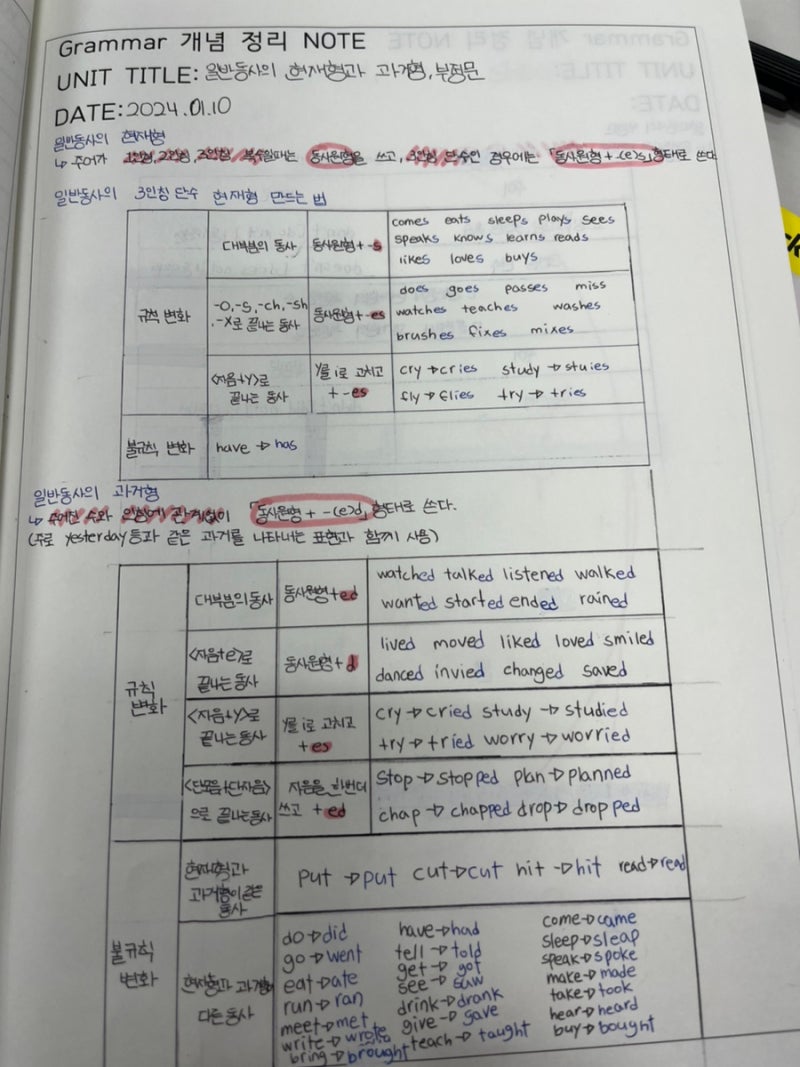 Grammar 개념 정리 NOTE
UNIT TITLE: 일반동사의 현재형과 과거형, 부정문
DATE: 2024.01.10
일반동사의 현재형
↳ 주어가 1인칭, 2인칭, 3인칭 복수일때는 동사원형을 쓰고, 3인칭 단수인 경우에는 「동사원형 + -(e)s」 형태로 쓴다
일반동사의 3인칭 단수 현재형 만드는 법
규칙 변화
대부분의 동사
동사원형 + -s
comes eats sleeps plays sees
speaks knows learns reads
likes loves buys
-o, -s, -ch, -sh
, -x로 끝나는 동사
동사원형 + -es
does goes passes miss
watches teaches washes
brushes fixes mixes
<자음+y>로
끝나는 동사
y를 i로 고치고
+ -es
cry → cries study → stuies
fly → flies try → tries
불규칙 변화
have → has
일반동사의 과거형
↳ 주어진 수와 인칭에 관계없이 「동사원형 + -(e)d」 형태로 쓴다.
(주로 yesterday 등과 같은 과거를 나타내는 표현과 함께 사용)
규칙
변화
대부분의 동사
동사원형 + ed
watched talked listened walked
wanted started ended rained
<자음+e>로
끝나는 동사
동사원형 + d
lived moved liked loved smiled
danced invied changed saved
<자음+y>로
끝나는 동사
y를 i로 고치고
+ es
cry → cried study → studied
try → tried worry → worried
<단모음+단자음>
으로 끝나는 동사
자음을 한번더
쓰고 + ed
stop → stopped plan → planned
chap → chapped drop → dropped
불규칙
변화
현재형과
과거형이 같은
동사
put → put cut → cut hit → hit read → read
현재형과 과거형이
다른 동사
do → did have → had come → came
go → went tell → told sleep → sleap
eat → ate get → got speak → spoke
run → ran see → saw make → made
meet → met drink → drank take → took
write → wrote give → gave hear → heard
bring → brought teach → taught buy → bought